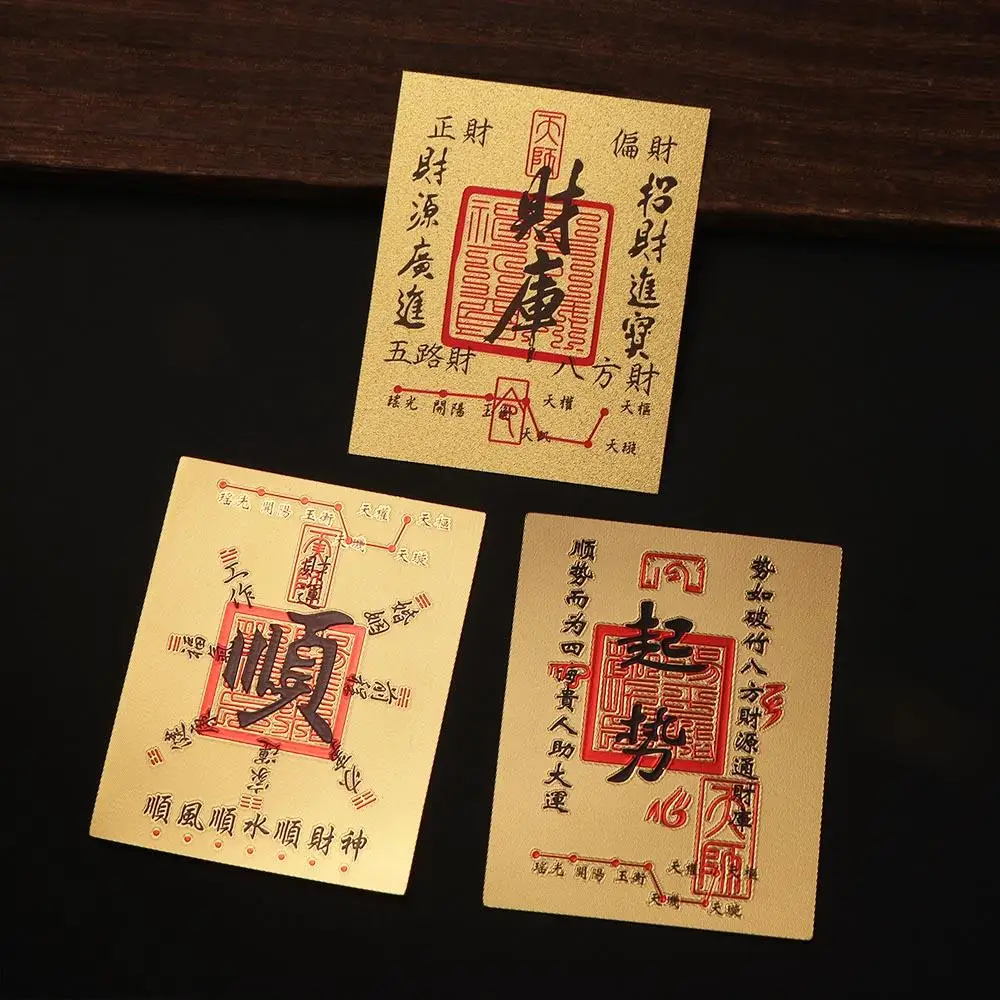 正財
天師
偏財
財庫
財源廣進
招財進寶
五路財
八方財
瑤光 開陽 玉衡 天權 天樞
天璇
瑤光 開陽 玉衡 天權 天樞
天機 天璇
財運
工作
婚姻
順
家運
健康
順風順水順財神
順势而为四海貴人助大運
起势
势如破竹八方財源通財庫
天師
瑤光 開陽 玉衡 天權 天樞
天機 天璇